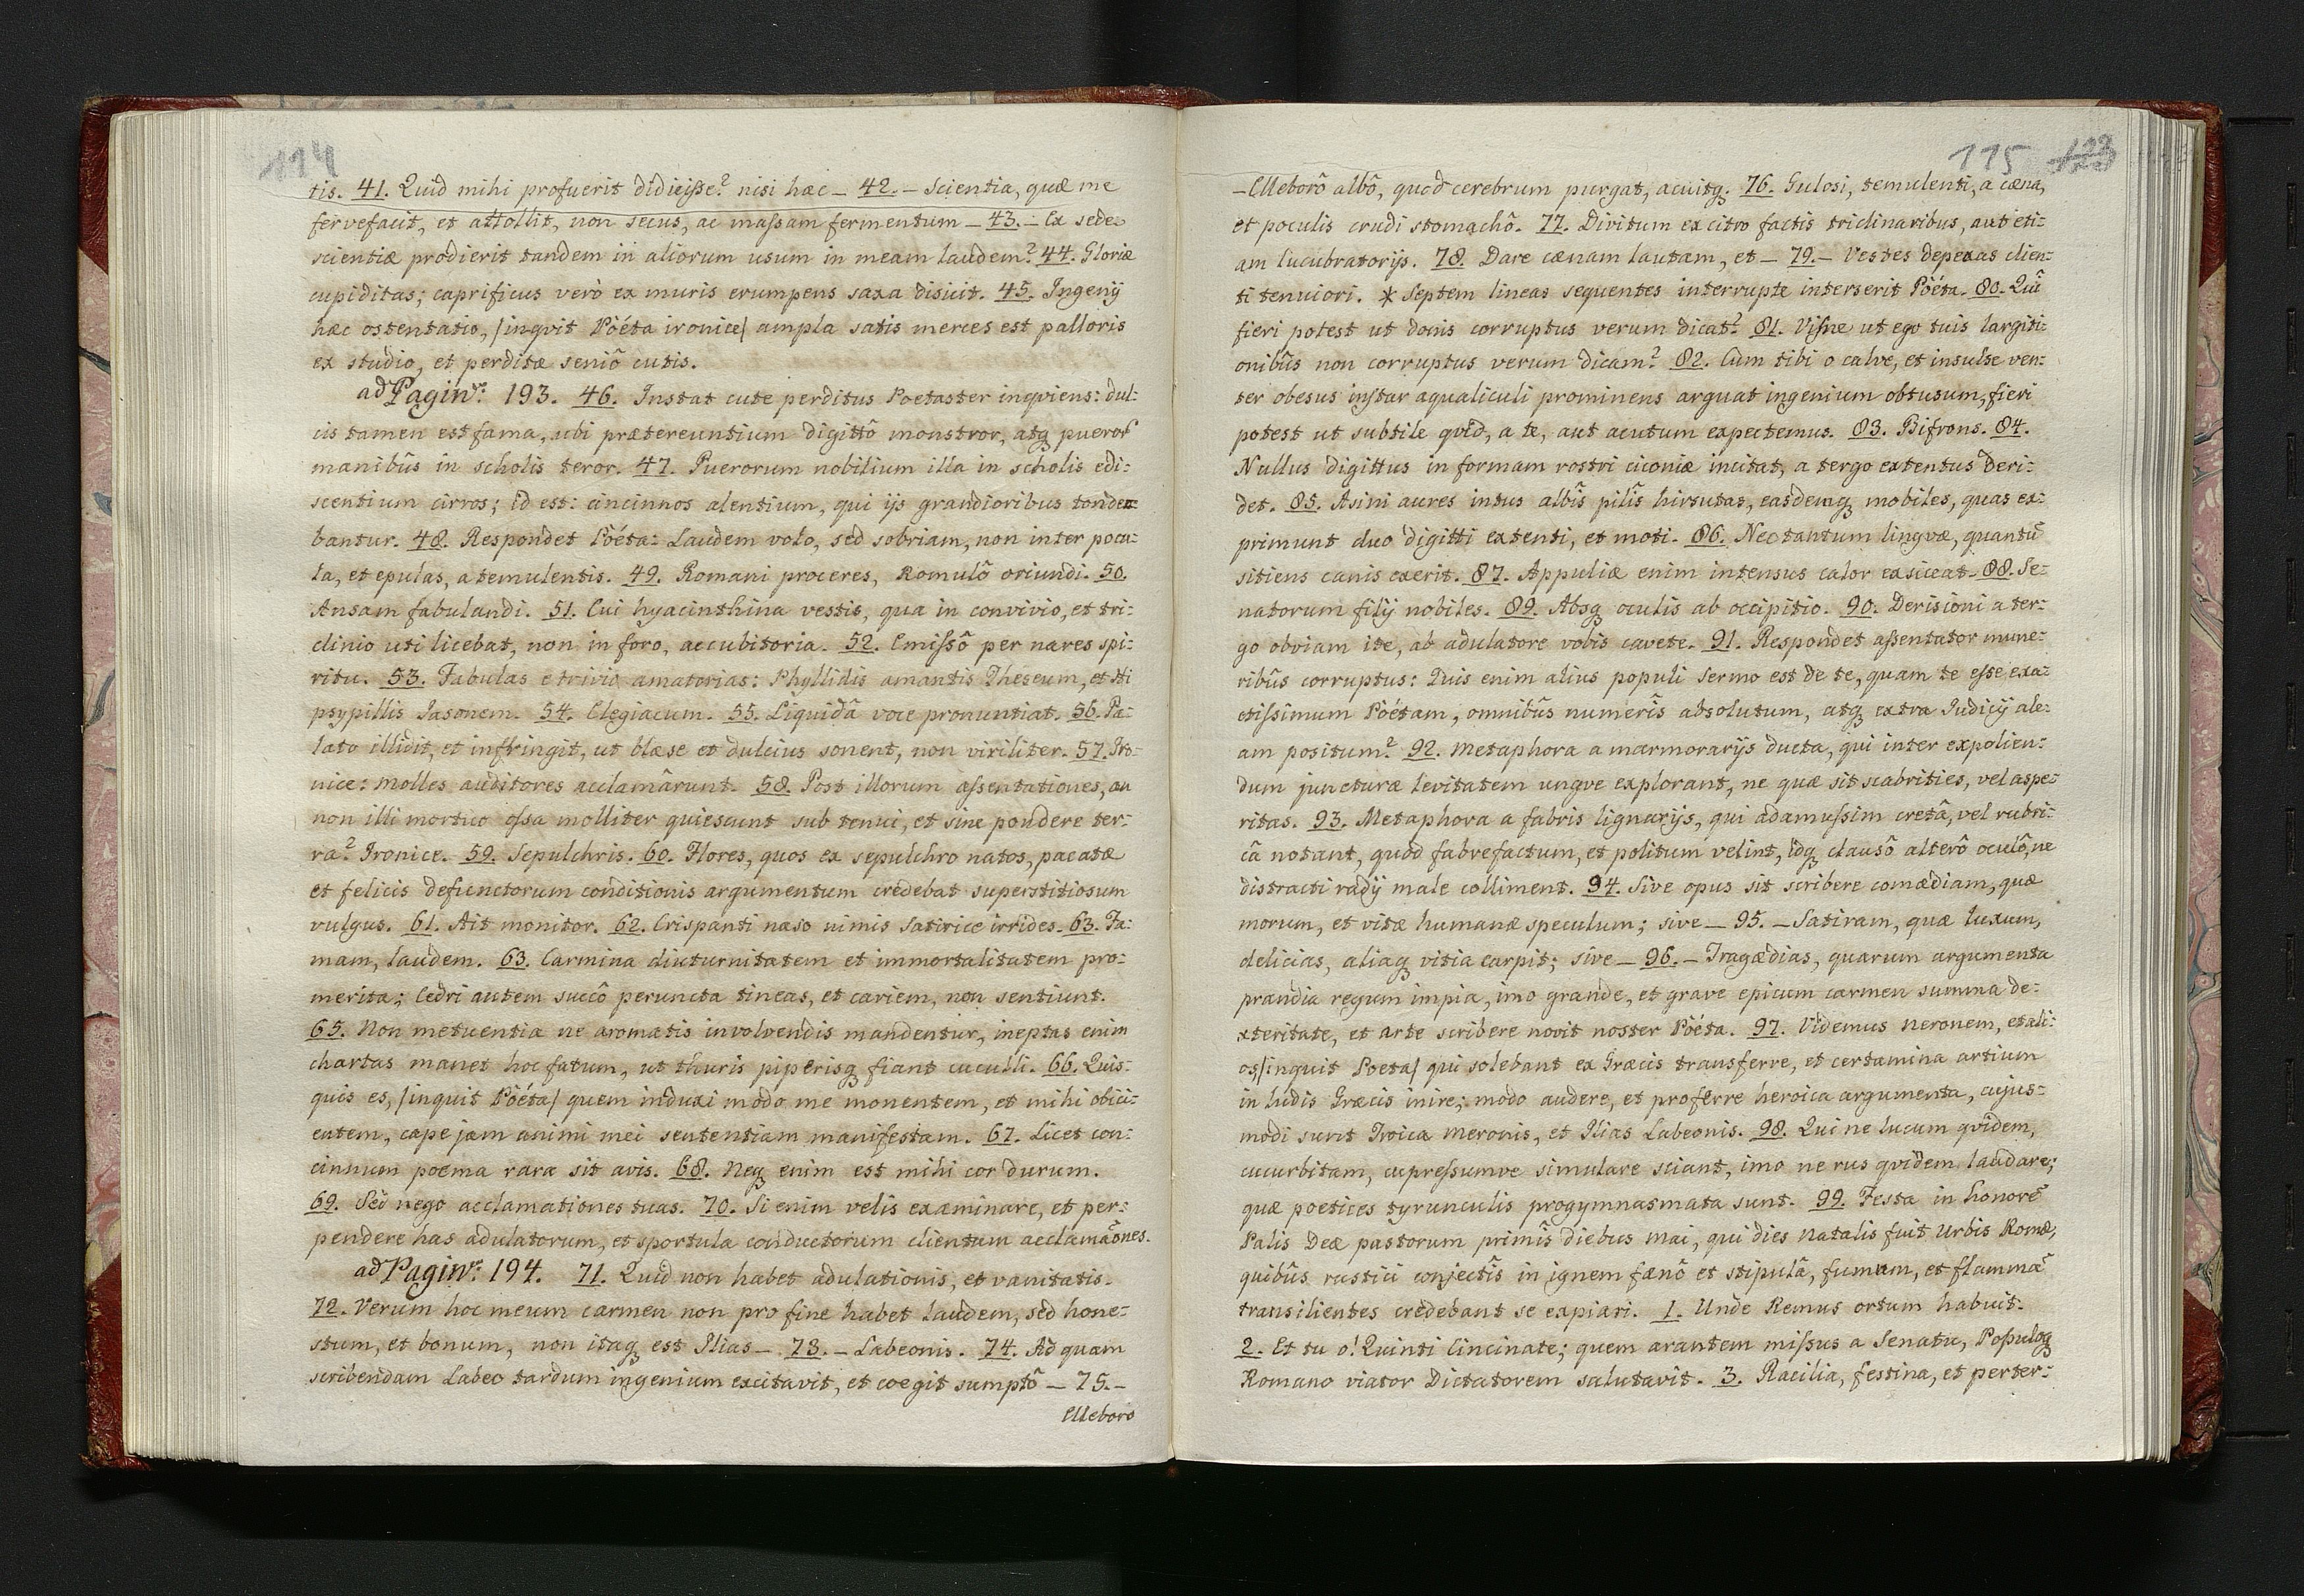 114
tis. 41. Quid mihi profuerit didicisse? nisi hæc _ 42. _ Scientia, quæ me
fervefacit, et attollit, non secus, ac massam fermentum _ 43. _ Ex sede
scientiæ prodierit tandem in aliorum usum in meam laudem? 44. Gloriæ
cupiditas; caprificus verò ex muris erumpens saxa disicit. 45. Ingenij
hæc ostentatio, /inqvit Pöéta ironice/ ampla satis merces est palloris
ex studio, et perditæ seniô cutis.
ad Paginam: 193. 46. Instat cute perditus Poetaster inqviens: dul:
cis tamen est fama, ubi prætereuntium digittô monstror, atq pueror
manibûs in scholis teror. 47. Puerorum nobilium illa in scholis edi:
scentium cirros; id est: cincinnos alentium, qui ijs grandioribus tonde=
bantur. 48. Respondet Pöéta: Laudem volo, sed sobriam, non inter pocu:
la, et epulas, a temulentis. 49. Romani proceres, Romulô oriundi. 50.
Ansam fabulandi. 51. Cui hyacinthina vestis, qua in convivio, et tri:
clinio uti licebat, non in foro, accubitoria. 52. Emissô per nares spi:
ritu. 53. Fabulas e trivio amatorias: Phyllidis amantis Theseum, et Hi
psypillis Jasonem. 54. Elegiacum. 55. Liquidâ voce pronuntiat. 56. Pa:
lato illidit, et infringit, ut blæse et dulcius sonent, non viriliter. 57. Iro:
nice: molles auditores acclamârunt. 58. Post illorum assentationes, an
non illi mortuo ossa molliter quiescunt sub tenui, et sine pondere ter:
ra? Ironice. 59. Sepulchris. 60. Flores, quos ex sepulchro natos, pacatæ
et felicis defunctorum conditionis argumentum credebat superstitiosum
vulgus. 61. Ait monitor. 62. Crispanti naso nimis Satirice irrides. 63. Fa:
mam, laudem. 63. Carmina diuturnitatem et immortalitatem pro:
merita; Cedri autem succô peruncta tineas, et cariem, non sentiunt.
65. Non metuentia ne aromatis involvendis mandentur, ineptas enim
chartas manet hoc fatum, ut thuris piperisq fiant cuculli. 66. Quis:
quis es, /inquit Pöéta/ quem induxi modo me monentem, et mihi obici:
entem, cape jam animi mei sententiam manifestam. 67. Licet con:
cinnum poema rara sit avis. 68. Neq enim est mihi cor durum.
69. Sed nego acclamationes tuas. 70. Si enim velis examinare, et per:
pendere has adulatorum, et sportula conductorum clientum acclamaõnes.
ad Paginam: 194. 71. Quid non habet adulationis, et vanitatis.
72. Verum hoc meum carmen non pro fine habet laudem, sed hone:
stum, et bonum, non itaq est Ilias _ 73. _ Labeonis. 74. Ad quam
scribendam Labeo tardum ingenium excitavit, et coegit sumptô _ 75. _
Elleboro
115 123
_ Elleborô albô, quod cerebrum purgat, acuitq. 76. Gulosi, temulenti, a cæna,
et poculis crudi stomachô. 77. Divitum ex citro factis tricliniaribus, aut eti:
am lucubratorijs. 78. Dare cænam lautam, et _ 79. _ Vestes depexas clien:
ti tenuiori. * Septem lineas sequentes interrupte interserit Pöéta. 80. Quî
fieri potest ut donis corruptus verum dicat? 81. Visne ut ego tuis largiti:
onibûs non corruptus verum dicam? 82. Cum tibi o calve, et insulse ven:
ter obesus instar aqualiculi prominens arguat ingenium obtusum, fieri
potest ut subtile qvid, a te, aut acutum expectemus. 83. Bifrons. 84.
Nullus digittus in formam rostri ciconiæ incitat, a tergo extentus deri:
det. 85. Asini aures intus albîs pilîs hirsutas, easdemq mobiles, quas ex:
primunt duo digitti extenti, et moti. 86. Nec tantum lingvæ, quantũ
sitiens canis exerit. 87. Appuliæ enim intensus calor exsiccat. 88. Se:
natorum filij nobiles. 89. Absq oculis ab occipitio. 90. Derisioni a ter:
go obviam ite, ab adulatore vobis cavete. 91. Respondet assentator mune:
ribûs corruptus: Quis enim alius populi sermo est de te, quam te esse exa:
ctissimum Pöétam, omnibûs numerîs absolutum, atq extra Judicij ale:
am positum? 92. Metaphora a marmorarijs ducta, qui inter expolien:
dum juncturæ levitatem ungve explorant, ne quæ sit scabrities, vel aspe:
ritas. 93. Metaphora a fabris lignarijs, qui adamussim cretâ, vel rubri:
câ notant, quod fabrefactum, et politum velint, idq clausô alterô oculô, ne
distracti radij male colliment. 94. Sive opus sit scribere comædiam, quæ
morum, et vitæ humanæ speculum; sive _ 95. _ Satiram, quæ luxum,
delicias, aliaq vitia carpit; sive _ 96. _ Tragædias, quarum argumenta
prandia regum impia, imo grande, et grave epicum carmen summa de:
xteritate, et arte scribere novit noster Pöéta. 97. Videmus Neronem, et ali:
os, /inquit Poeta/ qui solebant ex Græcis transferre, et certamina artium
in ludis Græcis inire; modo audere, et proferre heroica argumenta, cujus:
modi sunt Troica Neronis, et Ilias Labeonis. 98. Qui ne lucum qvidem,
cucurbitam, cupressumve simulare sciant, imo ne rus qvidem laudare;
quæ poetices tyrunculis progymnasmata sunt. 99. Festa in honorẽ
Palis Deæ pastorum primîs diebus Mai, qui dies natalis fuit Urbis Romæ,
quibûs rustici conjectîs in ignem fænô et stipulâ, fumum, et flammã
transilientes credebant se expiari. 1. Unde Remus ortum habuit.
2. Et tu o! Quinti Cincinate; quem arantem missus a Senatu, Populoq
Romano viator Dictatorem salutavit. 3. Racilia, festina, et perter: